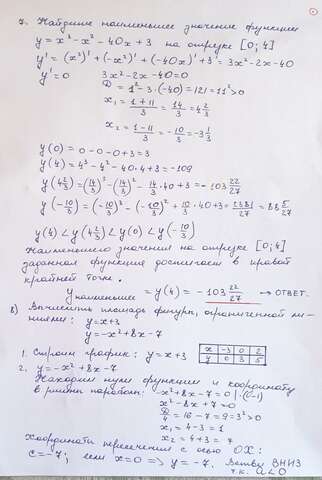 7. Найдите наименьшее значение функции
y = x³ - x² - 40x + 3 на отрезке [0; 4]
y' = (x³)' + (-x²)' + (-40x)' + 3' = 3x² - 2x - 40
y' = 0 3x² - 2x - 40 = 0
D/4 = 1² - 3·(-40) = 121 = 11² > 0
x₁ = (1+11)/3 = 14/3 = 4 2/3
x₂ = (1-11)/3 = -10/3 = -3 1/3
y(0) = 0 - 0 - 0 + 3 = 3
y(4) = 4³ - 4² - 40·4 + 3 = -109
y(4 2/3) = (14/3)³ - (14/3)² - 14/3·40 + 3 = -103 22/27
y(-10/3) = (-10/3)³ - (-10/3)² + 10/3·40 + 3 = 2381/27 = 88 5/27
y(4) < y(4 2/3) < y(0) < y(-10/3)
Наименьшего значения на отрезке [0; 4]
заданная функция достигает в правой
крайней точке.
y наименьшее = y(4) = -103 22/27 → ОТВЕТ.
8) Вычислить площадь фигуры, ограниченной ли-
ниями: y = x + 3
y = -x² + 8x - 7
1. Строим график: y = x + 3 x -3 0 2
y 0 3 5
2. y = -x² + 8x - 7
Находим нули функции и координату
вершины параболы: -x² + 8x - 7 = 0 | ·(-1)
x² - 8x + 7 = 0
D/4 = 16 - 7 = 9 = 3² > 0
x₁ = 4 - 3 = 1
x₂ = 4 + 3 = 7
Координаты пересечения с осью OX:
c = -7; если x = 0 => y = -7. Ветви ВНИЗ
т.к. a < 0